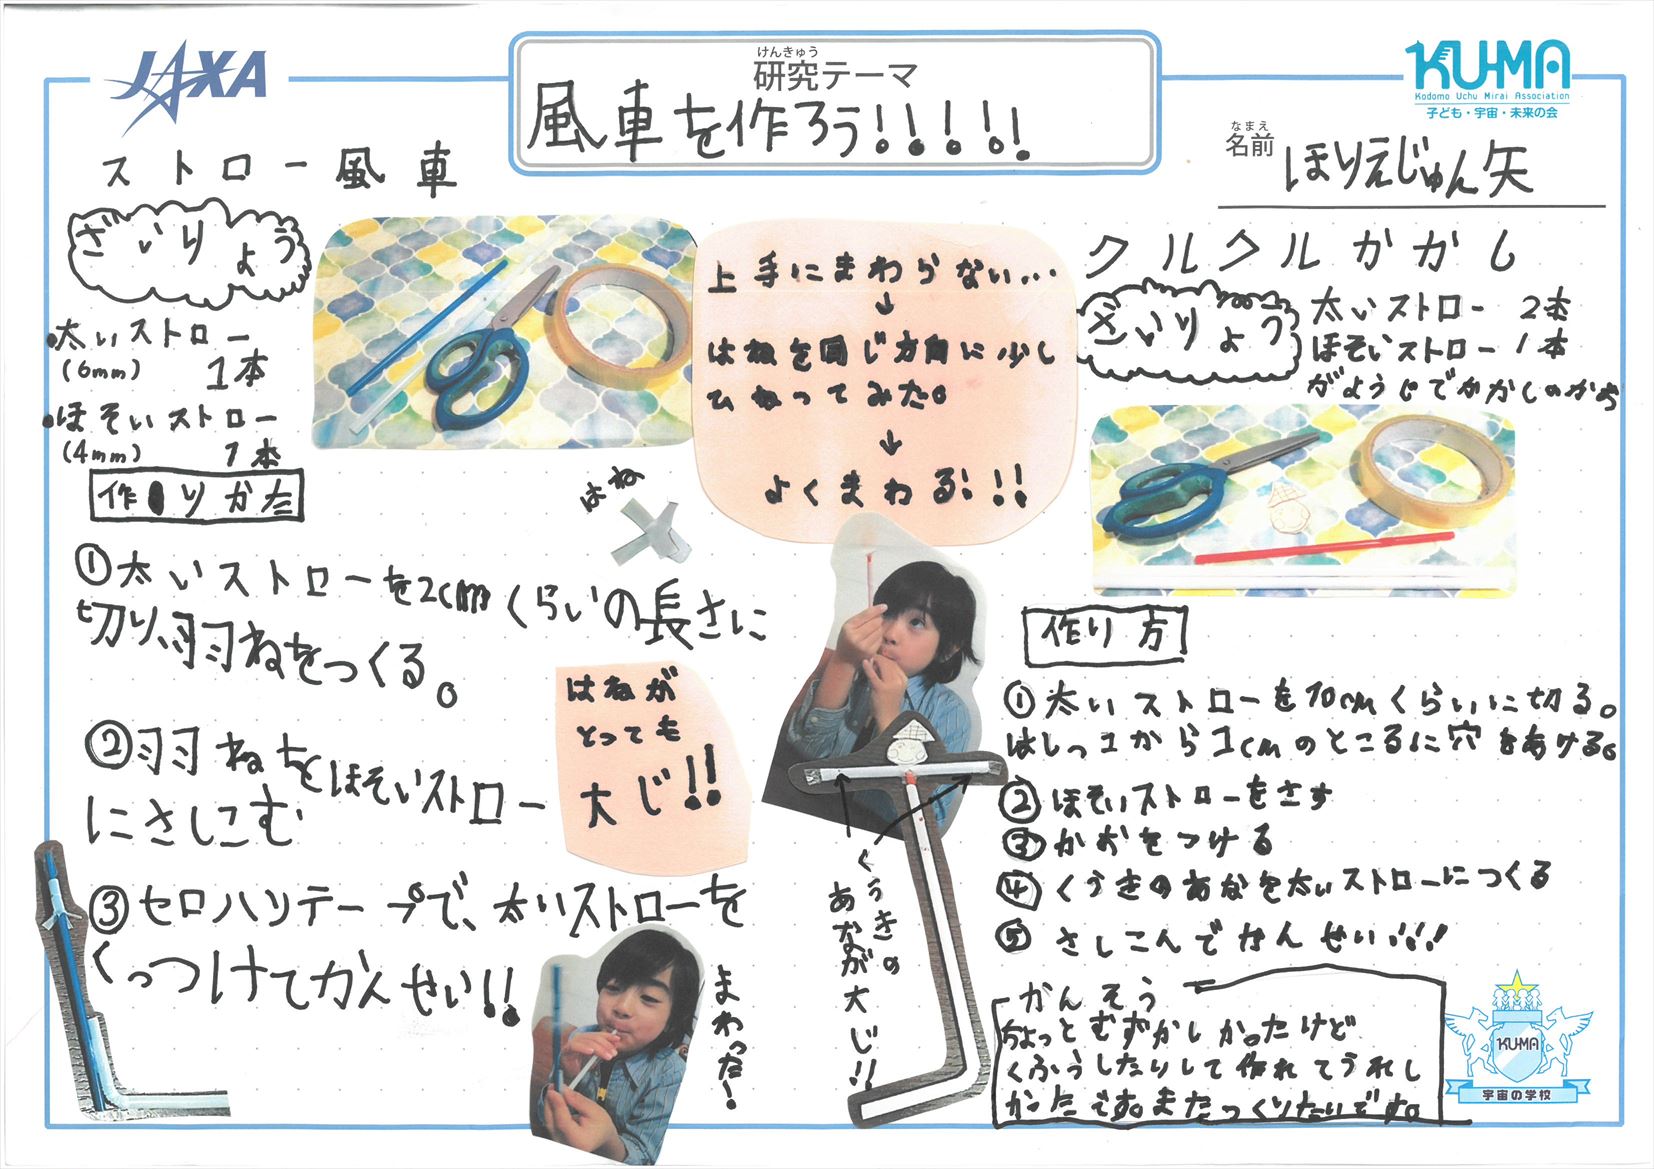 JAXA
けんきゅう
研究テーマ
風車を作ろう!!!!!
KU-MA
Kodomo Uchu Mirai Association
子ども・宇宙・未来の会
なまえ
名前
ほりえじゅん矢
ストロー風車
ざいりょう
・太いストロー
(6mm) 1本
・ほそいストロー
(4mm) 1本
作りかた
①太いストローを2cmくらいの長さに
切り、羽ねをつくる。
②羽ねをほそいストロー
にさしこむ
③セロハンテープで、太いストローを
くっつけてかんせい!!
はね
はねが
とっても
大じ!!
まわった!
上手にまわらない…
↓
はねを同じ方向に少し
ひねってみた。
↓
よくまわる!!!
クルクルかかし
ざいりょう
太いストロー 2本
ほそいストロー 1本
がようしでかかしのかお
作り方
①太いストローを10cmくらいに切る。
はしっコから1cmのところに穴をあける。
②ほそいストローをさす
③かおをつける
④くうきのあなを太いストローにつくる
⑤さしこんでかんせい!!!
くうきの
あなが大じ!!
かんそう
ちょっとむずかしかったけど
くふうしたりして作れてうれし
かたです。またつくりたいです。
KU-MA
宇宙の学校